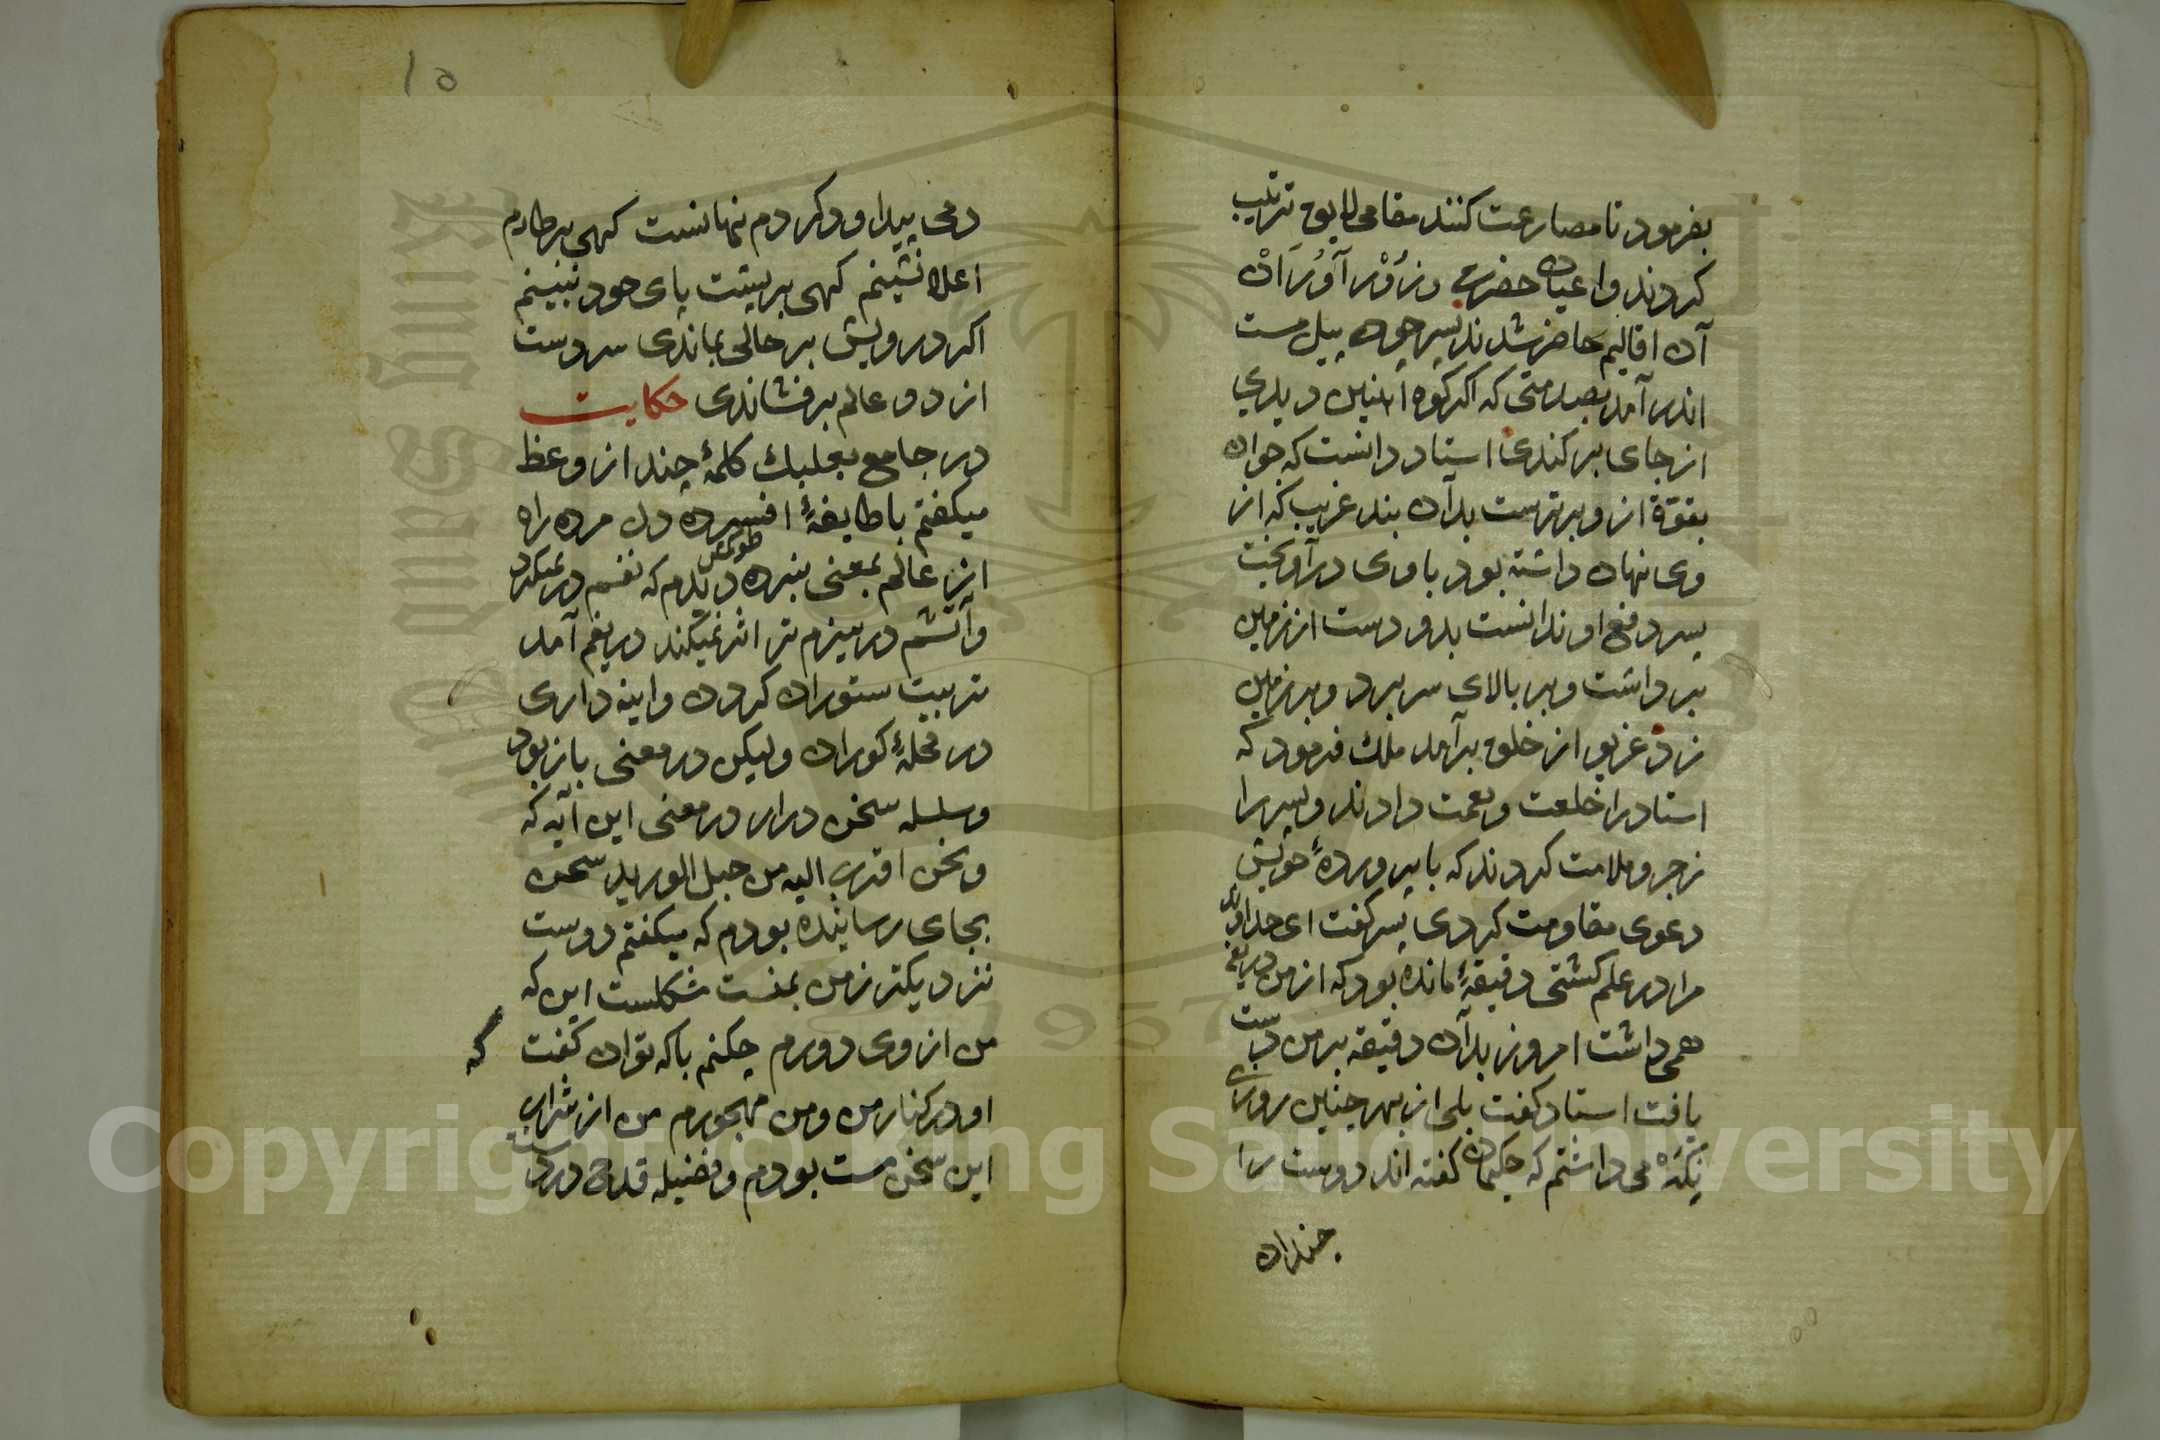 بفرمود تا مصارعت کنند مقامی لایق ترتیب
کردند و اعیان حضرت و زورآوران
آن اقالیم حاضر شدند پسر چون پیل مست
اندر آمد بصدمتی که اگر کوه آهنین دیدی
از جای برکندی استاد دانست که جوان
بقوة از و برترست بدان بند غریب که از
وی نهان داشته بود با وی درآویخت
پسر دفع او ندانست بدو دست از زمین
برداشت و بر بالای سر برد و بر زمین
زد غریو از خلق برآمد ملک فرمود که
استاد را خلعت و نعمت دادند و پسر را
زجر و ملامت کردند که با پروردهٔ خویش
دعوی مقاومت کردی پسر گفت ای خداوند
مرا در علم کشتی دقیقهٔ مانده بود که از من دریغ
همی داشت امروز بدان دقیقه بر من دست
یافت استاد گفت بلی از بهر چنین روزی
نگه می داشتم که حکیمان گفته اند دوست را
چندان
۱۵
دمی پیدا و دکر دم نهانست کهی بر طارم
اعلا نشینم کهی بر پشت پای خود نبینم
اکر درویش بر حالی بماندی سر دست
از دو عالم برفشاندی حکایت
در جامع بعلبک کلمهٔ چند از وعظ
میکفتم با طایفهٔ افسرده دل مرده راه
از عالم بمعنی نبرده دیدم که نفسم در نمیکیرد
و آتشم در هیزم تر اثر نمیکند دریغم آمد
تربیت ستوران کردن و اینه داری
در محلهٔ کوران ولیکن در معنی باز بود
و سلسله سخن دراز در معنی این آیه که
و نحن اقرب الیه من حبل الورید سخن
بجای رسانیده بودم که میکفتم دوست
نزدیکتر از من بمنست مشکلست این که
من از وی دورم چکنم با که توان گفت که
او در کنار من و من مهجورم من از شراب
این سخن مست بودم و فضیله قدح در دست